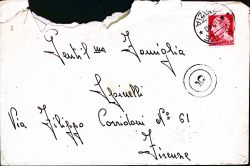 Gentil.ma Famiglia
Spinelli
Via Filippo Corridoni N° 61
Firenze